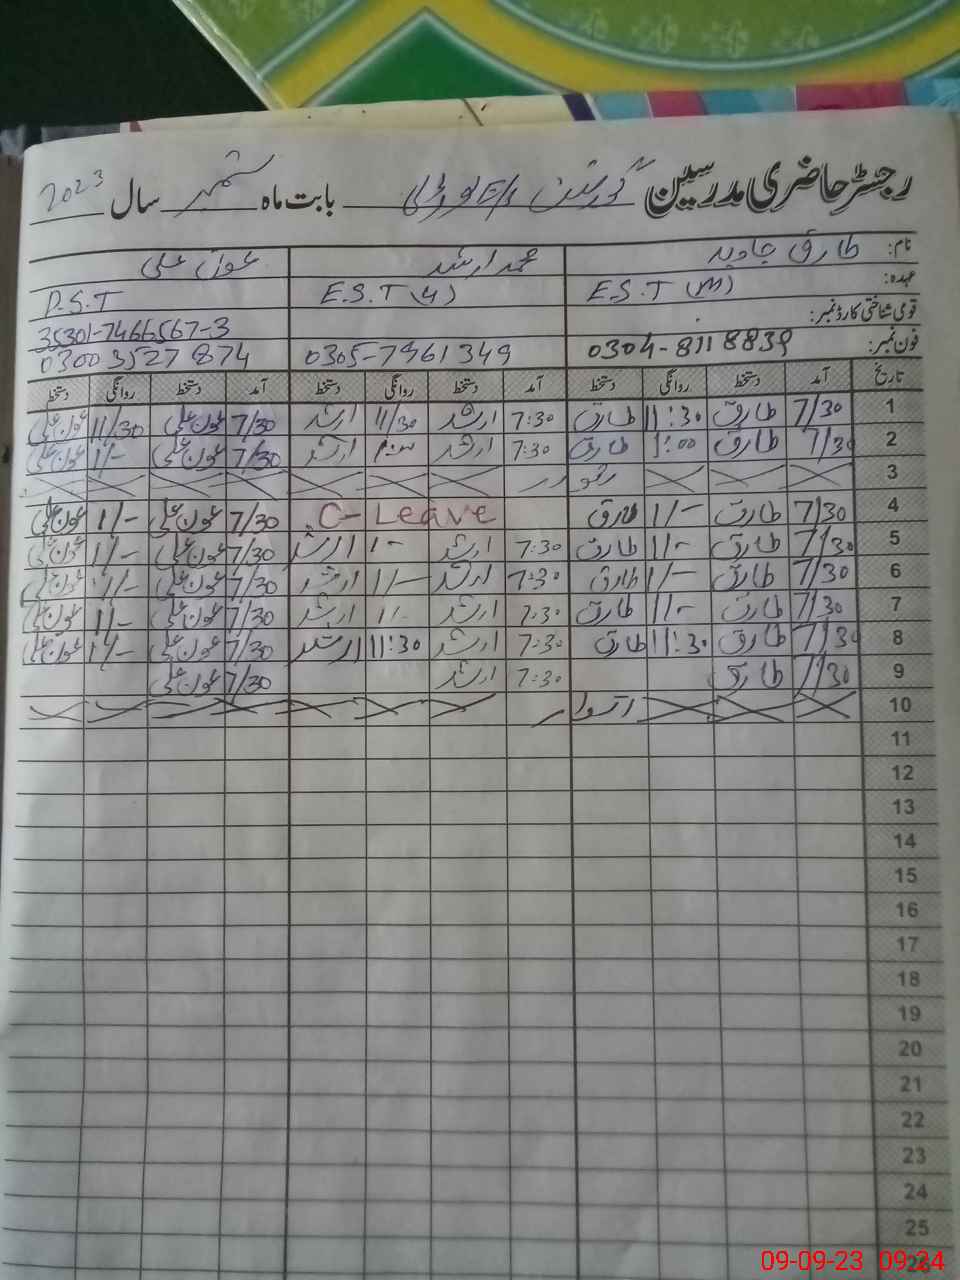 رجسٹر حاضری مدرسین گورنمنٹ بابت ماہ ستمبر سال 2023
نام: طارق جاوید محمد ارشد عون علی
عہدہ: E.S.T (M) E.S.T (U) P.S.T
قومی شناختی کارڈ نمبر: 35301-7466567-3
فون نمبر: 0304-8118839 0305-7961349 03003527874
تاریخ آمد دستخط روانگی دستخط آمد دستخط روانگی دستخط آمد دستخط روانگی دستخط
1 7/30 طارق 11:30 طارق 7:30 ارشد 11/30 ارشد 7/30 عون علی 11/30 عون علی
2 7/30 طارق 1:00 طارق 7:30 ارشد ارشد 7/30 عون علی 1/- عون علی
3
4 7/30 طارق 1/- طارق C-Leave 7/30 عون علی 1/- عون علی
5 7/30 طارق 1/- طارق 7:30 ارشد 1- ارشد 7/30 عون علی 1/- عون علی
6 7/30 طارق 1/- طارق 7:30 ارشد 1/- ارشد 7/30 عون علی 1/- عون علی
7 7/30 طارق 1/- طارق 7:30 ارشد 1/- ارشد 7/30 عون علی 1/- عون علی
8 7/30 طارق 11:30 طارق 7:30 ارشد 11:30 ارشد 7/30 عون علی 1/- عون علی
9 7/30 طارق 7:30 ارشد 7/30 عون علی
10 اتوار
11
12
13
14
15
16
17
18
19
20
21
22
23
24
25
26
09-09-23 09:24